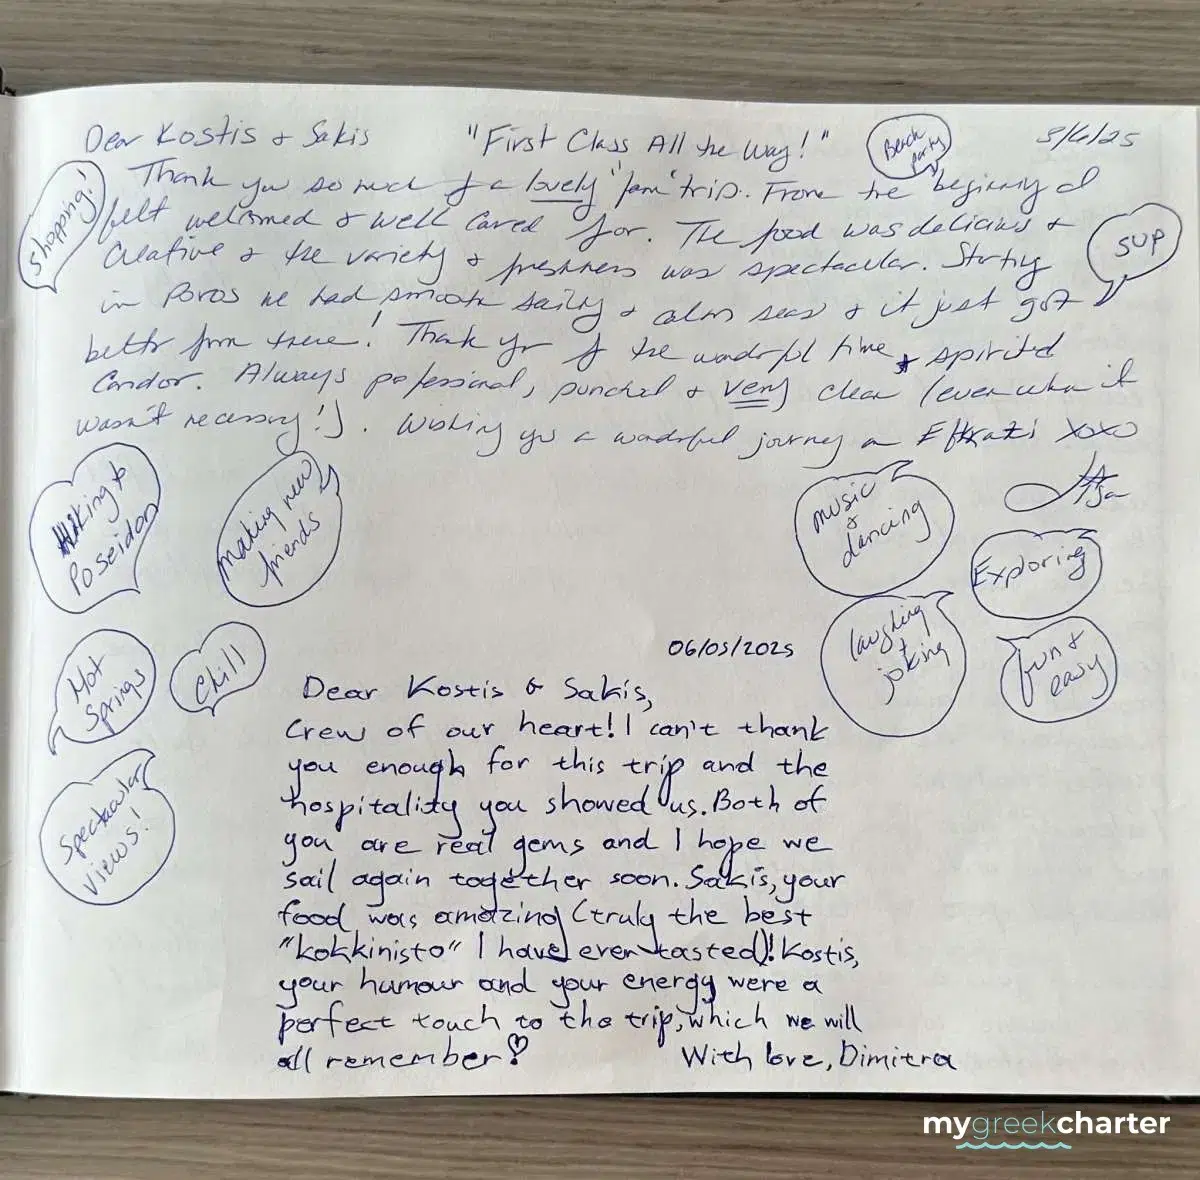 Dear Kostis & Sakis "First Class All the Way!" Beach party 5/6/25
Shopping!
Thank you so much for a lovely 'fam' trip. From the beginning I
felt welcomed & well cared for. The food was delicious &
SUP
creative & the variety & freshness was spectacular. Starting
in Poros we had smooth sailing & calm seas & it just got
better from there! Thank you for the wonderful time & spirited
candor. Always professional, punctual & very clear (even when it
wasn't necessary!). Wishing you a wonderful journey on Eftrazis XOXO
Hiking to
Poseidon
making new
friends
music
&
dancing
Exploring
laughing
+
joking
fun &
easy
Hot
Springs
Chill
Spectacular
views!
06/05/2025
Dear Kostis & Sakis,
Crew of our heart! I can't thank
you enough for this trip and the
hospitality you showed us. Both of
you are real gems and I hope we
sail again together soon. Sakis, your
food was amazing (truly the best
"kokkinisto" I have ever tasted)! Kostis,
your humour and your energy were a
perfect touch to the trip, which we will
all remember!
With love, Dimitra
mygreekcharter